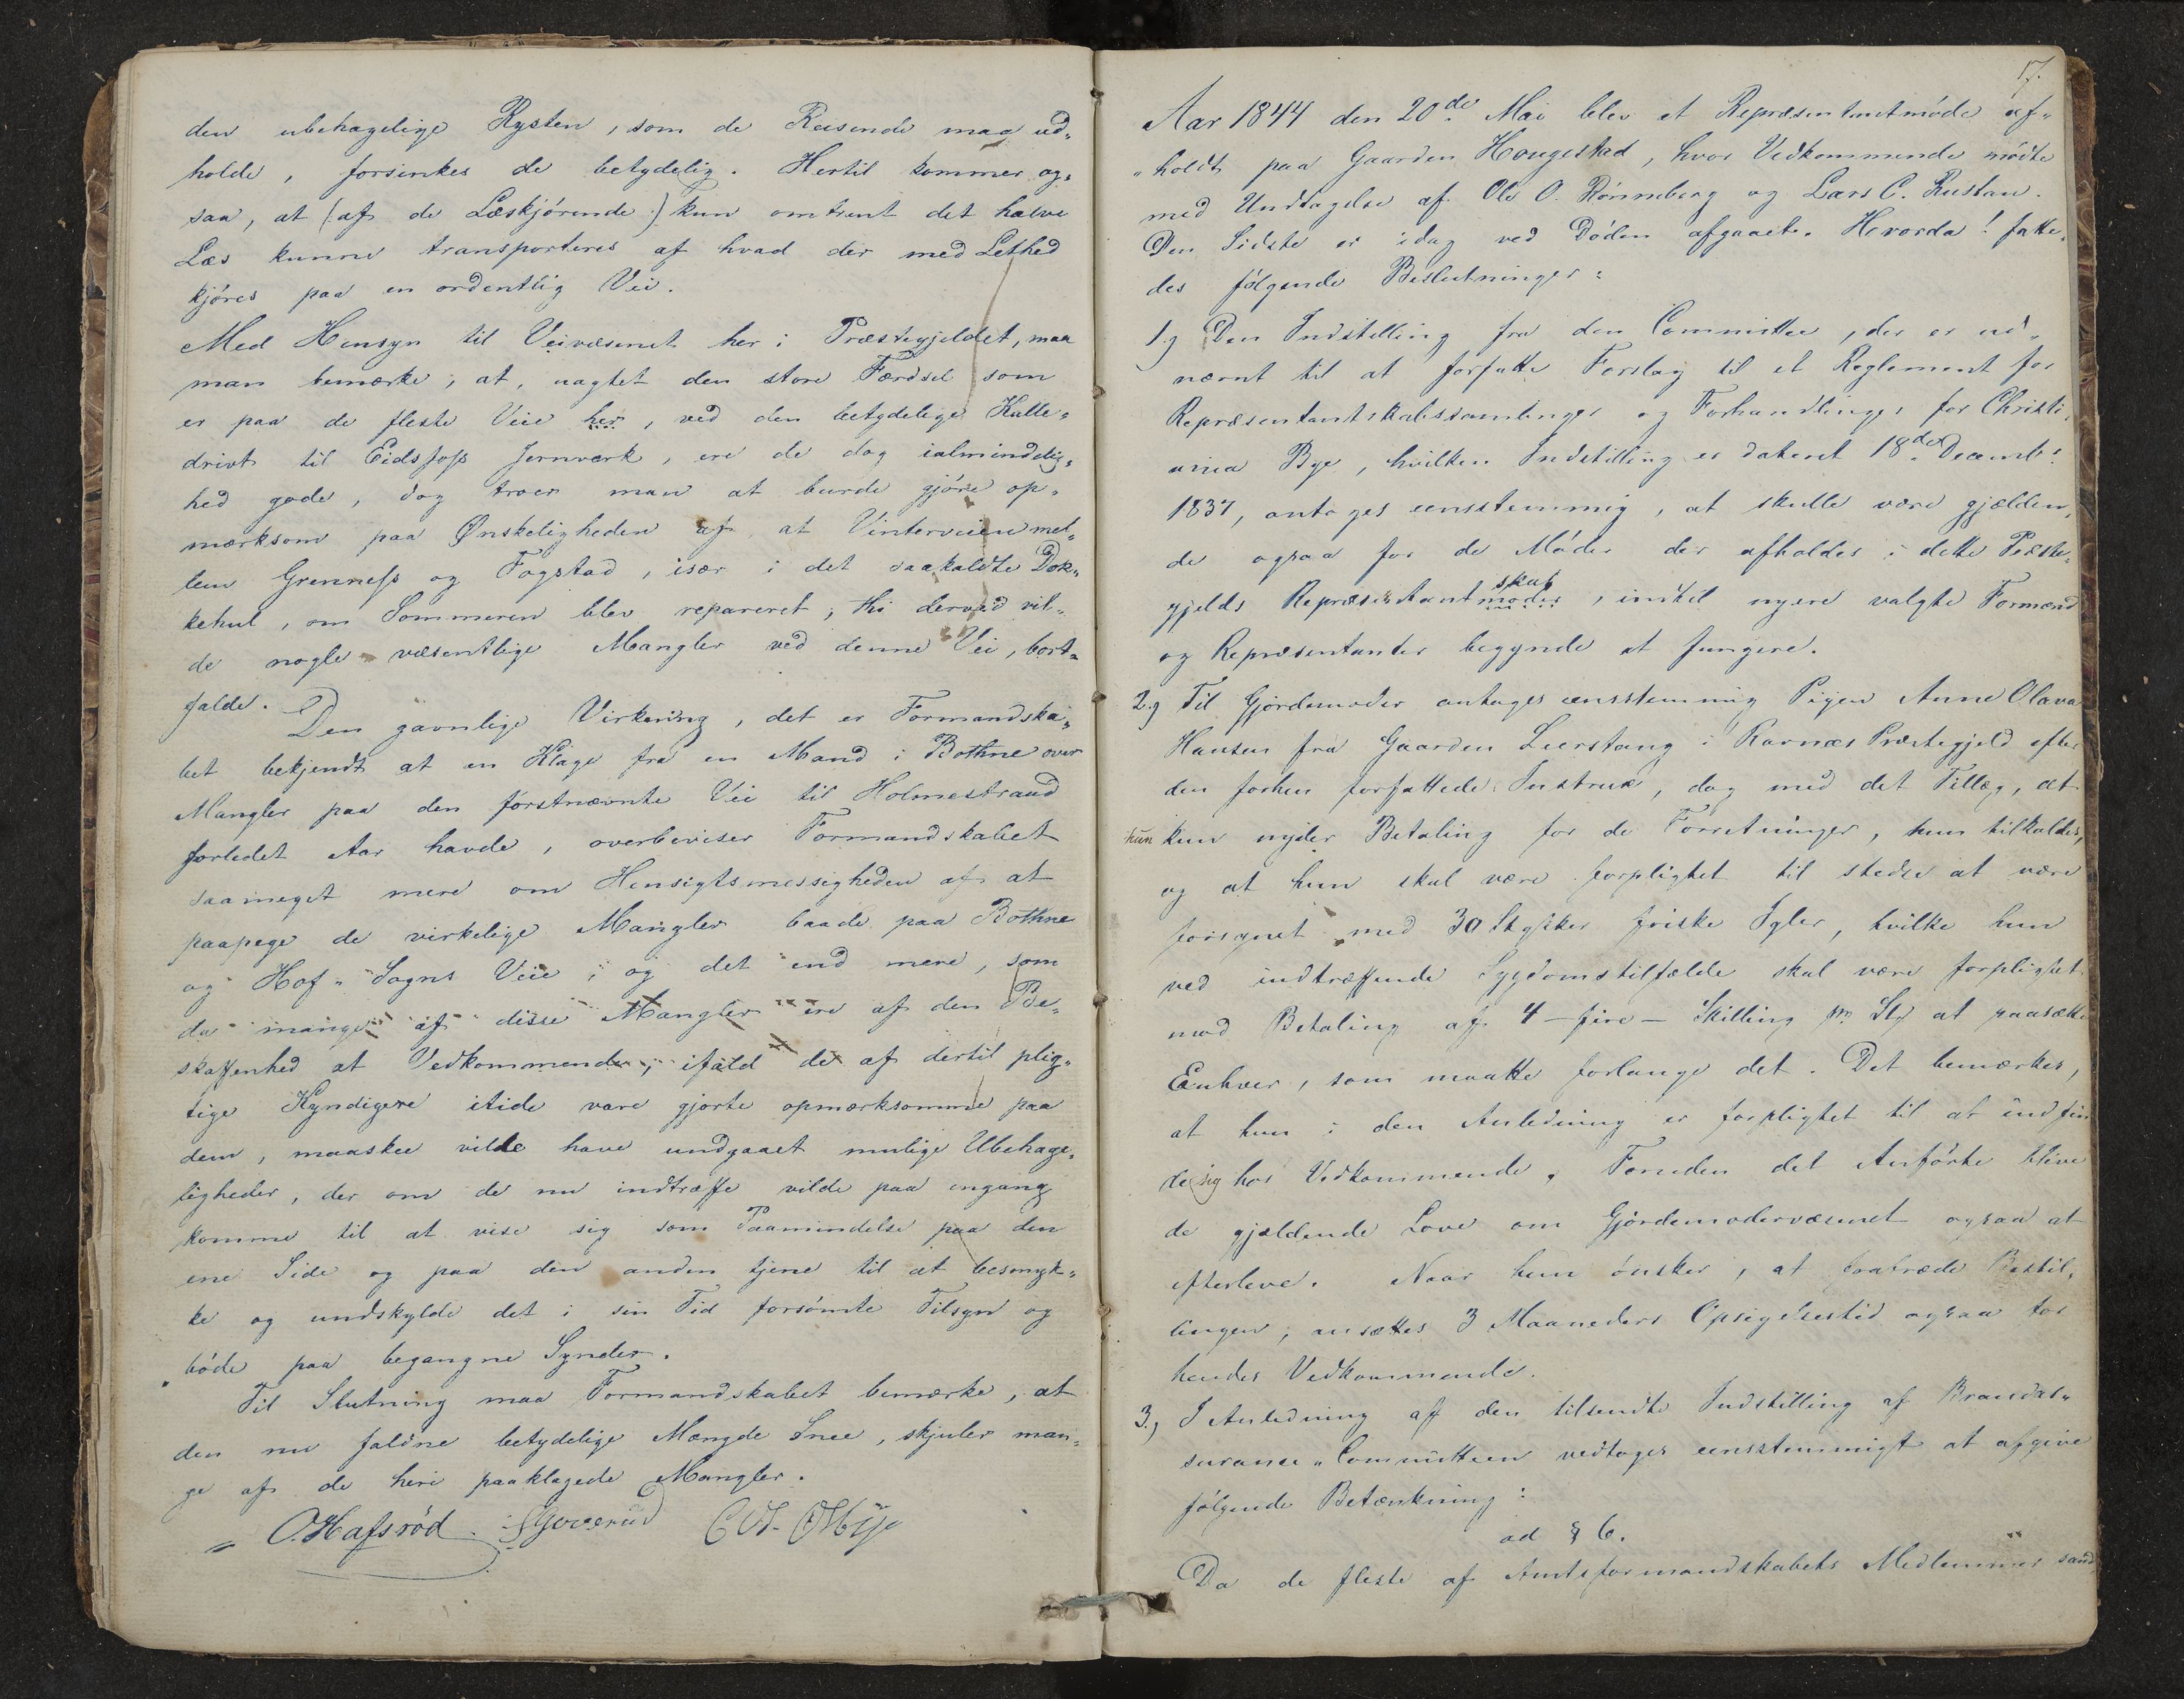 den ubehagelige Rysten, som de Reisende maa ud„
holde, forsinkes de betydelig. Hertil kommer og„
saa, at (:af de Læskjørende:) kun omtrent det halve
Læs kunne transporteres af hvad der med Lethed
kjøres paa en ordentlig Vei.
Med Hensyn til Veivæsenet her i Præstegjeldet, maa
man bemærke, at, uagtet den store Færdsel som
er paa de fleste Veie her, ved den betydelige Kulle„
drivt til Eidsfoss Jernverk, ere de dog ialmindelig„
hed gode, dog troer man at burde gjøre op„
mærksom paa Ønskeligheden af at Vinterveien mel„
lem Grenness og Fogstad, især i det saakaldte Dok„
kehul, om Sommeren blev repareret; thi derved vil„
de nogle væsentlige Mangler ved denne Vei, bort„
falde.
Den gavnlige Virkning, det er Formandska„
bet bekjendt at en Klage fra en Mand i Bothne over
Mangler paa den førstnævnte Vei til Holmestrand
forledet Aar havde, overbeviser Formandskabet
saameget mere om Hensigtsmessigheden af at
paapege de virkelige Mangler baade paa Bothne
og Hof„ Sogns Veie; og det end mere, som
da mange af disse Mangler ere af den Be„
skaffenhed at Vedkommende, ifald de af dertil plig„
tige Kyndigere itide vare gjorte opmærksomme paa
dem, maaskee vilde have undgaaet mulige Ubehage„
ligheder, der om de nu indtræffe vilde paa engang
komme til at vise sig som Paamindelse paa den
ene Side og paa den anden tjene til at besmyk„
ke og undskylde det i sin Tid forsømte Tilsyn og
bøde paa begangne Synder.
Til Slutning maa Formandskabet bemærke, at
den nu faldne betydelige Mængde Snee, skjuler man„
ge af de heri paaklagede Mangler.
O. Hafsrød. Goverud
17.
Aar 1844 den 20de Mai blev et Repræsentantmøde af„
„holdt paa Gaarden Hougestad, hvor Vedkommende mødte
med Undtagelse af Ole O. Rønneberg og Lars C. Rustan.
Den Sidste er idag ved Døden afgaaet. Hvorda! fatte„
des følgende Beslutninger:
1.) Den Indstilling fra den Committee, der er ud„
nævnt til at forfatte Forslag til et Reglement for
Repræsentantskabssamlinger og Forhandlinger for Christi„
ania Bye, hvilken Indstilling er dateret 18de Decembr.
1837, antages eensstemmig, at skulle være gjælden„
de ogsaa for de Møder der afholdes i dette Præste„
gjelds Repræsentantmøder skab, indtil nyere valgte Formænd
og Repræsentanter begynde at fungere.
2.) Til Gjordemoder antages eensstemmig Pigen Anne Olava
Hansen fra Gaarden Leerstang i Ravnæs Præstegjeld efter
den forhen forfattede Instrux, dog med det Tillæg, at
hun kun nyder Betaling for de Forretninger, hun tilkaldes,
og at hun skal være forpligtet til stedse at være
forsynet med 30 Stykker friske Igler, hvilke hun
ved indtræffende Sygdomstilfælde skal være forpligtet
mod Betaling af 4 – fire – Skilling pr. St. at paasætte
Enhver, som maatte forlange det. Det bemærkes,
at hun i den Anledning er forpligtet til at indfin
de sig hos Vedkommende. Foruden det Anførte blive
de gjældende Love om Gjordemodervæsenet ogsaa at
efterleve. Naar hun ønsker, at fratræde Bestil„
lingen, ansættes 3 Maaneders Opsigelsestid ogsaa for
hendes Vedkommende.
3.) I Anledning af den tilsendte Indstilling af Brandas„
surance„Committeen vedtages eensstemmigt at afgive
følgende Betænkning:
ad § 6.
Da de fleste af Amtsformandskabets Medlemmer sand